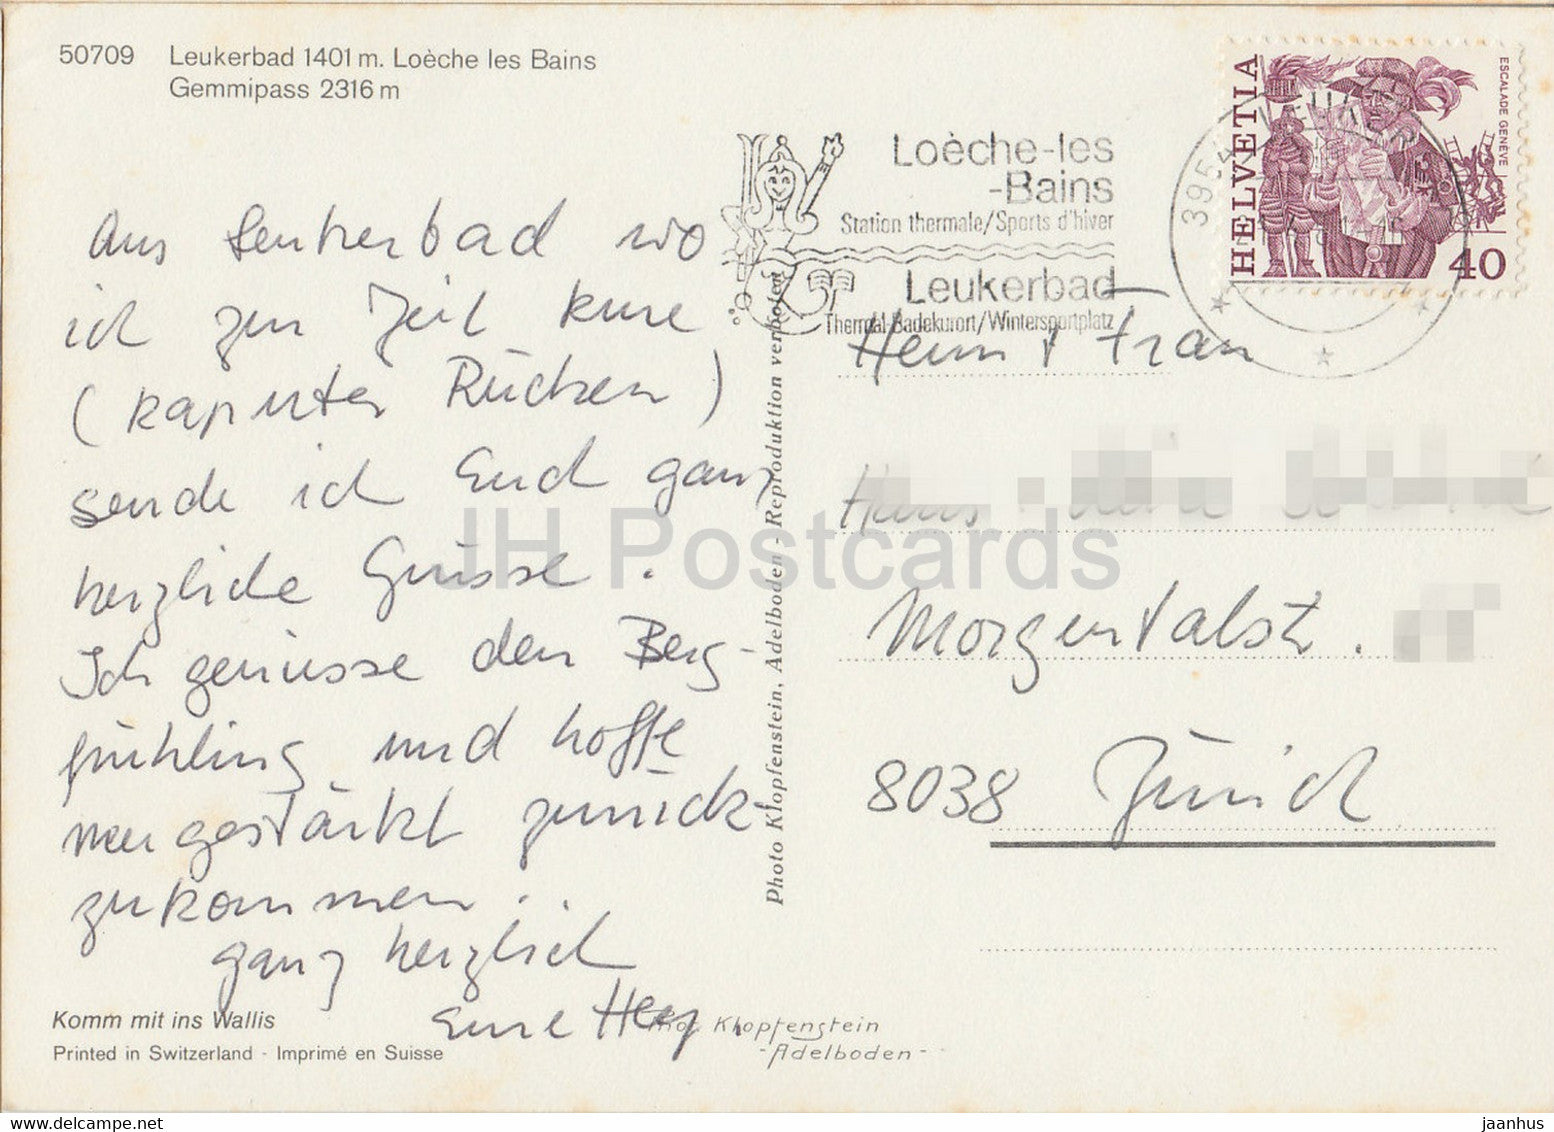 50709 Leukerbad 1401 m. Loèche les Bains
Gemmipass 2316 m
Aus Leukerbad wo
ich zur Zeit kure
(kaputter Rücken)
sende ich Euch ganz
herzliche Grüsse.
Ich geniesse den Berg-
frühling und hoffe
neugestärkt zurück-
zukommen..
ganz herzlich
Eure
Komm mit ins Wallis
Printed in Switzerland - Imprimé en Suisse
Photo Klopfenstein, Adelboden - Reproduktion verboten
Klopfenstein
-Adelboden-
Loèche-les
-Bains
Station thermale/Sports d'hiver
Leukerbad
Thermal-Badekurort/Wintersportplatz
3954
HELVETIA
ESCALADE GENÈVE
40
Herrn + Frau
Hans
Morgentalstr.
8038 Zürich
JH Postcards
www.delcampe.net
jaanhus